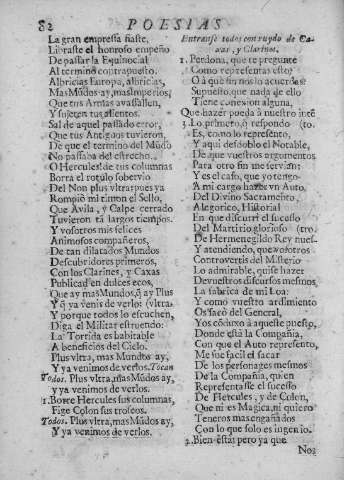 82
POESIAS
La gran empressa fiaste,
Libraste el honroso empeño
De passar la Equinocial
Al termino contrapuesto.
Albricias Europa, albricias,
Mas Mũdos ay, mas Imperios,
Que tus Armas avassallen,
Y sujeten tus alientos.
Sal de aquel passado error,
Que tus Antiguos tuvieron,
De que el termino del Mũdo
No passaba del estrecho.
O Hercules! de tus columnas
Borra el rotulo sobervio
Del Non plus vltra: pues ya
Rompiò mi timon el Sello,
Que Avila, y Calpe cerrado
Tuvieron tà largos tiempos.
Y vosotros mis felices
Animosos compañeros,
De tan dilatados Mundos
Descubridores primeros,
Con los Clarines, y Caxas
Publicad en dulces ecos,
Que ay mas Mundos, q̃ ay Plus
Y q̃ ya venis de verlo: (vltra.
Y porque todos lo escuchen,
Diga el Militar estruendo:
La Torrida es habitable
A beneficios del Cielo.
Plus vltra, mas Mundos ay,
Y ya venimos de verlos. Tocan
Todos. Plus vltra, mas Mũdos ay,
y ya venimos de verlos.
1. Borre Hercules sus columnas,
Fige Colon sus trofeos.
Todos. Plus vltra, mas Mũdos ay,
Y ya venimos de verlos.
Entranse todos con ruydo de Ca-
xas, y Clarines.
1. Perdona, que te pregunte
Como representas esto;
O à què sin nos lo acuerdas?
Supuesto, que nada de ello
Tiene conexion alguna,
Que hazer pueda à nuestro intẽ
3. Lo primero, q̃ respondo (to.
Es, como lo represento,
Y aqui desdoblo el Notable,
De que vuestros argumentos
Para otro fin me servian:
Y es el caso, que yo tengo
A mi cargo hazer vn Auto,
Del Divino Sacramento,
Alegorico, Historial
En que discurrì el sucesso
Del Martirio glorioso (tro.
De Hermenegildo Rey nues-
Y atendiendo, que vosotros
Controvertis del Misterio
Lo admirable, quise hazer
De vuestros discursos mesmos,
La fabrica de mi Loa:
Y como vuestro ardimiento
Os sacò del General,
Y os conduxo à aqueste puesto,
Donde està la Compañia,
Con que el Auto represento,
Me fue facil el sacar
De los personages mesmos
De la Compañia, quien
Representasse el sucesso
De Hercules, y de Colon,
Que ni es Magica, ni quiero
Teneros mas engañados
Con lo que solo es ingenio.
2. Bien està: pero ya que
Nos